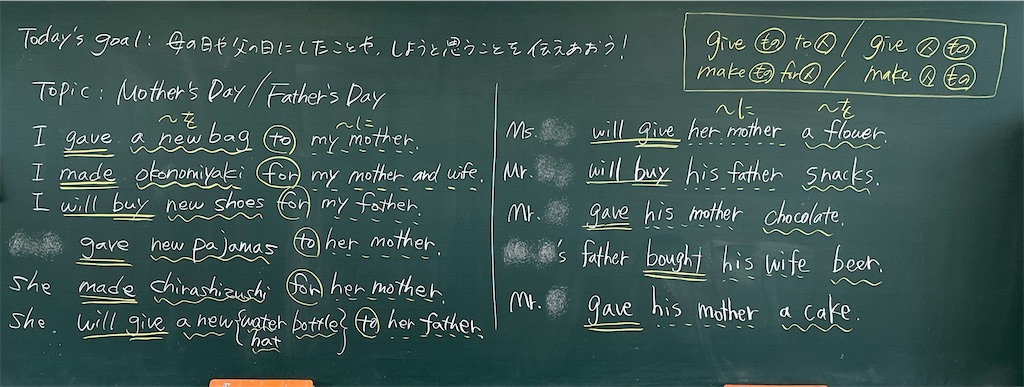 Today's goal: 母の日や父の日にしたことや、しようと思うことを伝えあおう!
give もの to 人 / give 人 もの
make もの for 人 / make 人 もの
Topic: Mother's Day / Father's Day
～を ～に
I gave a new bag to my mother.
I made okonomiyaki for my mother and wife.
I will buy new shoes for my father.
gave new pajamas to her mother.
She made chirashizushi for her mother.
She. will give a new {water bottle} to her father.
hat
～に ～を
Ms. will give her mother a flower.
Mr. will buy his father snacks.
Mr. gave his mother chocolate.
's father bought his wife beer.
Mr. gave his mother a cake.